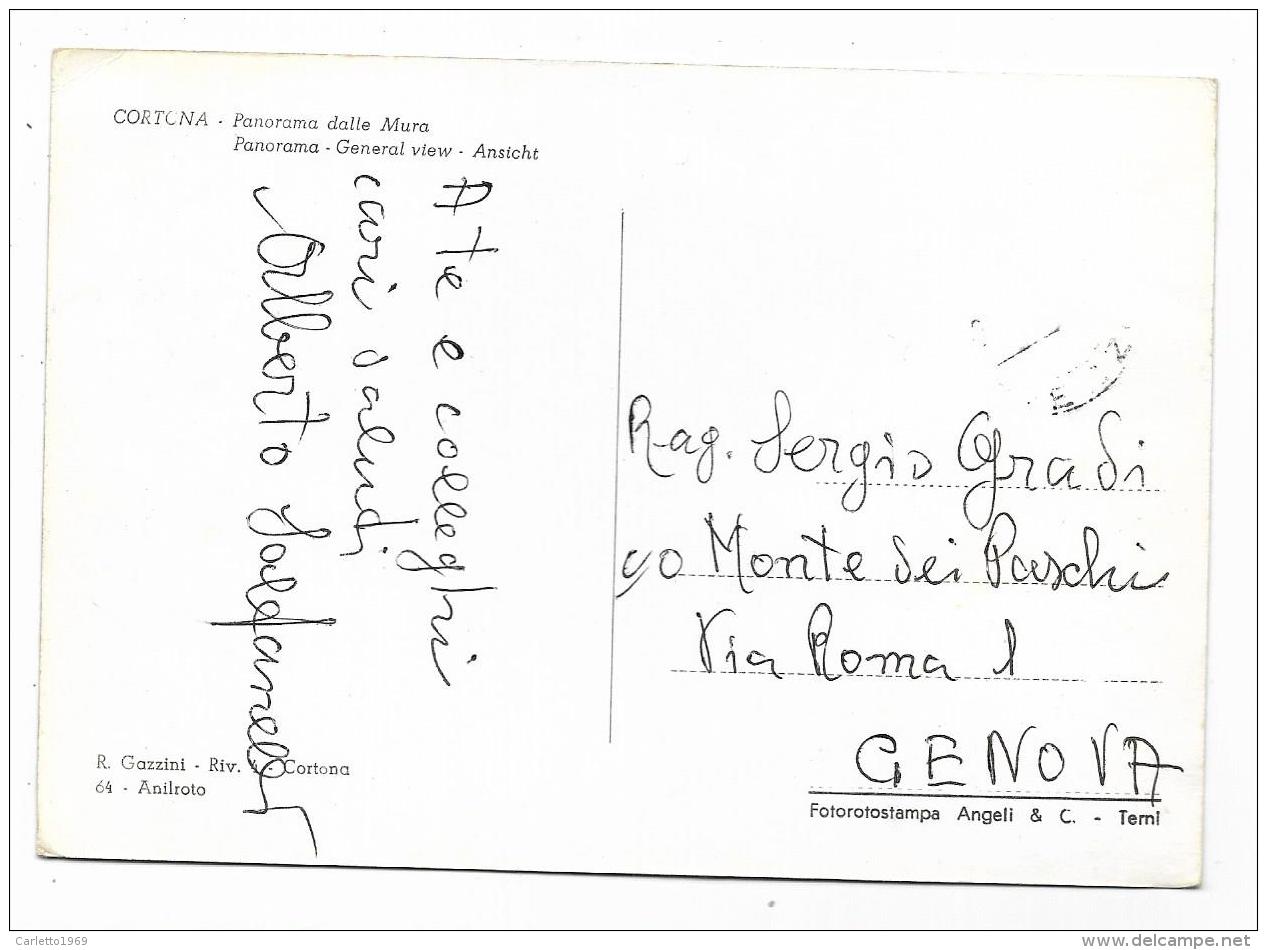 CORTONA - Panorama dalle Mura
Panorama - General view - Ansicht
A te e colleghi
cari saluti
Alberto
Rag. Sergio Gradi
c/o Monte dei Paschi
Via Roma 1
GENOVA
R. Gazzini - Riv. 4 - Cortona
64 - Anilroto
Fotorotostampa Angeli & C. - Terni
Carletto1969
delcampe.net